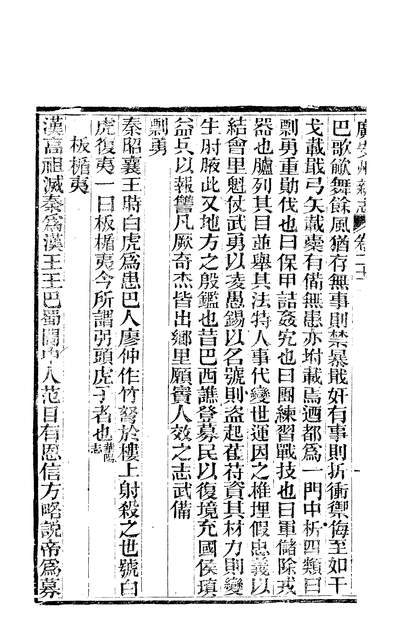 廣安州新志 卷二十
巴歌歈舞餘風猶存無事則禁暴戢奸有事則折衝禦侮至如干
戈載戢弓矢載櫜有備無患亦坿載焉迺都為一門中析四類曰
剽勇重勛伐也曰保甲詰姦宄也曰團練習戰技也曰軍儲除戎
器也臚列其目並舉其法特人事代變世運因之椎埋假忠義以
結會里魁仗武勇以凌愚錫以名號則盜起萑苻資其材力則變
生肘腋此又地方之殷鑑也昔巴西譙登募民以復境充國侯瑱
益兵以報讐凡厥奇杰皆出鄉里願竇人效之志武備
剽勇
秦昭襄王時白虎為患巴人廖仲作竹弩於樓上射殺之世號白
虎復夷一曰板楯夷今所謂弜頭虎子者也華陽志
板楯夷
漢高祖滅秦為漢王王巴蜀閬中人范目有恩信方略說帝為募